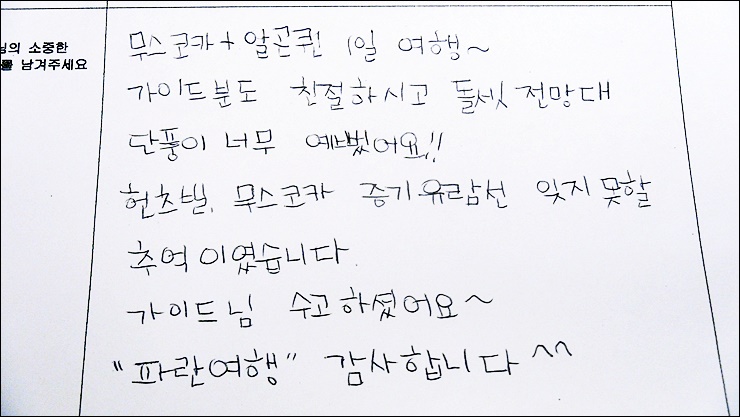 님의 소중한
를 남겨주세요
무스코카+알곤퀸 1일 여행~
가이드분도 친절하시고 돌셋 전망대
단풍이 너무 예뻤어요!!
헌츠빌, 무스코카 증기유람선 잊지못할
추억이였습니다
가이드님 수고하셨어요~
"파란여행" 감사합니다^^